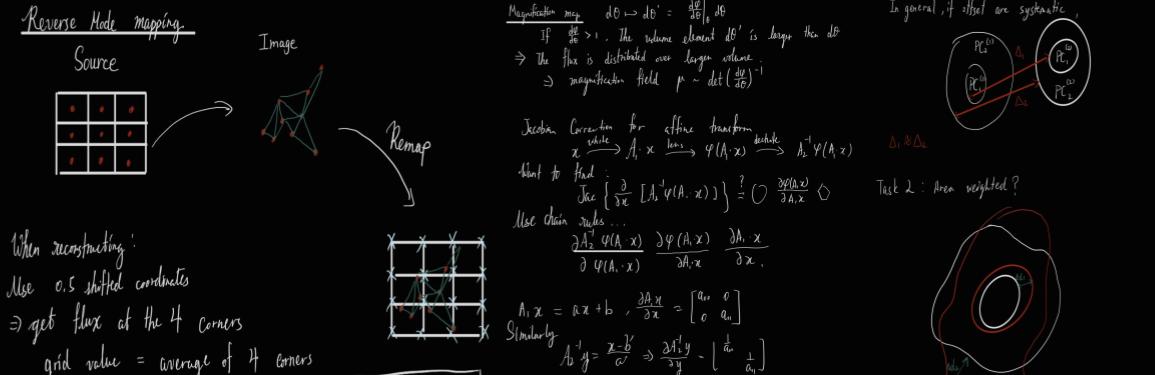 Reverse Mode mapping
Source
Image
Remap
When reconstructing:
Use 0.5 shifted coordinates
⇒ get flux at the 4 corners
grid value = average of 4 corners
Magnification map dθ ↦ dθ' = ∂φ/∂θ|θ dθ
If ∂φ/∂θ > 1, The volume element dθ' is larger than dθ
⇒ The flux is distributed over larger volume.
⇒ magnification field μ ~ det(∂φ/∂θ)⁻¹
Jacobian Correction for affine transform
x → A₁·x lens → φ(A₁·x) → A₂⁻¹φ(A₁x)
Want to find:
Jac { ∂/∂x [A₂⁻¹φ(A₁·x)] } ?= ○ ∂φ(A₁x)/∂A₁x ○
Use chain rules...
∂A₂⁻¹φ(A₁·x)/∂φ(A₁·x) ∂φ(A₁x)/∂A₁·x ∂A₁·x/∂x.
A₁x = ax+b, ∂A₁x/∂x = [a₀₀ 0 0 a₁₁]
Similarly
A₂⁻¹y = x-b'/a' ⇒ ∂A₂⁻¹y/∂y = [1/a₀₀ 1/a₁₁]
In general, if offset are systematic,
PC₂⁽¹⁾
PC₁⁽¹⁾
Δ₁
Δ₂
PC₁⁽²⁾
PC₂⁽²⁾
Δ₁ ≈ Δ₂
Task 2: Area weighted?